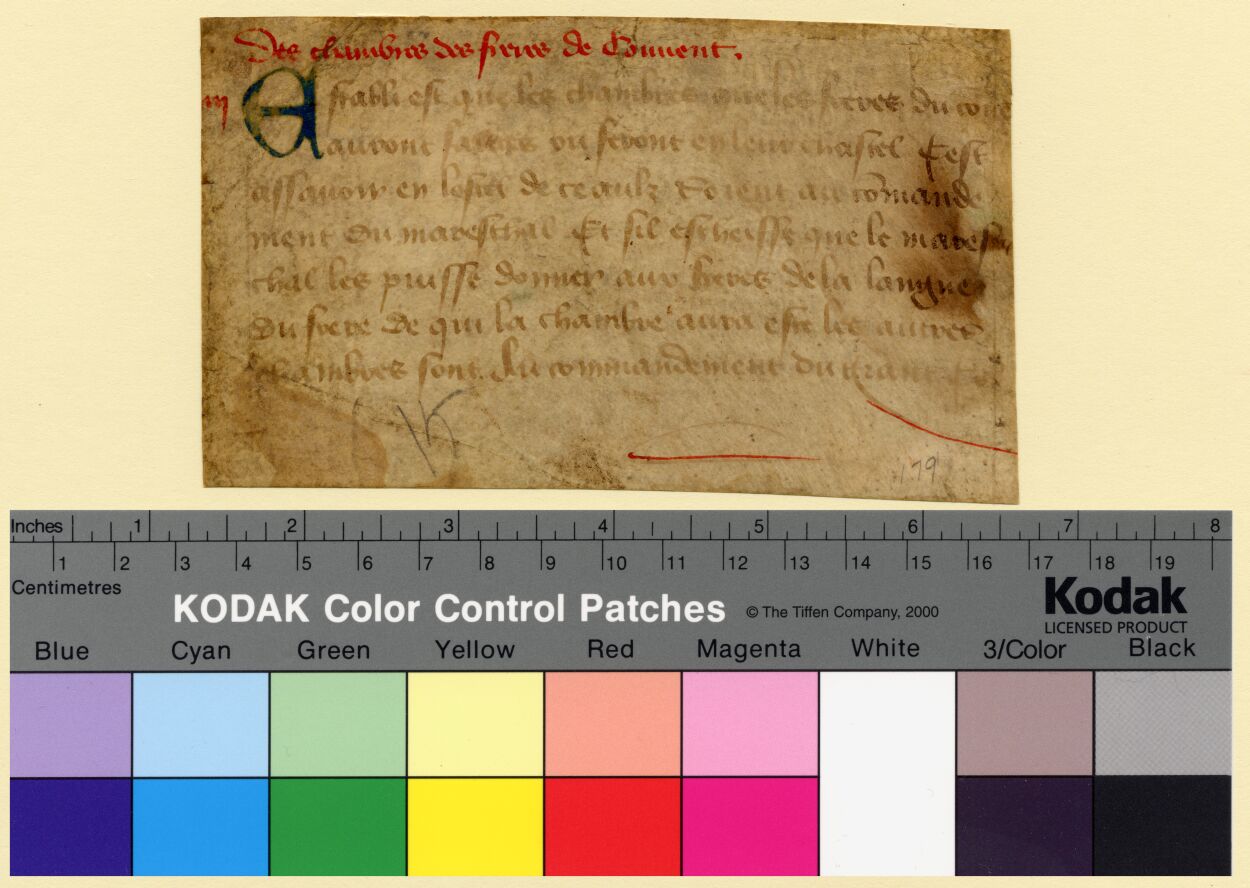 Des chambres des freres de Conuent.
iij
Establi est que les chambres que les freres du cou
auront faites ou feront en leur chastel Cest
assauoir en lostel de ceaulz soient au cōmande
ment du mareschal Et sil escheisse que le mares
chal les puisse donner aux freres de la langue
du frere de qui la chambre aura este les autres
chambres sont du commandement du grant
179
Inches 1 2 3 4 5 6 7 8
1 2 3 4 5 6 7 8 9 10 11 12 13 14 15 16 17 18 19
Centimetres
KODAK Color Control Patches © The Tiffen Company, 2000 Kodak
LICENSED PRODUCT
Blue Cyan Green Yellow Red Magenta White 3/Color Black